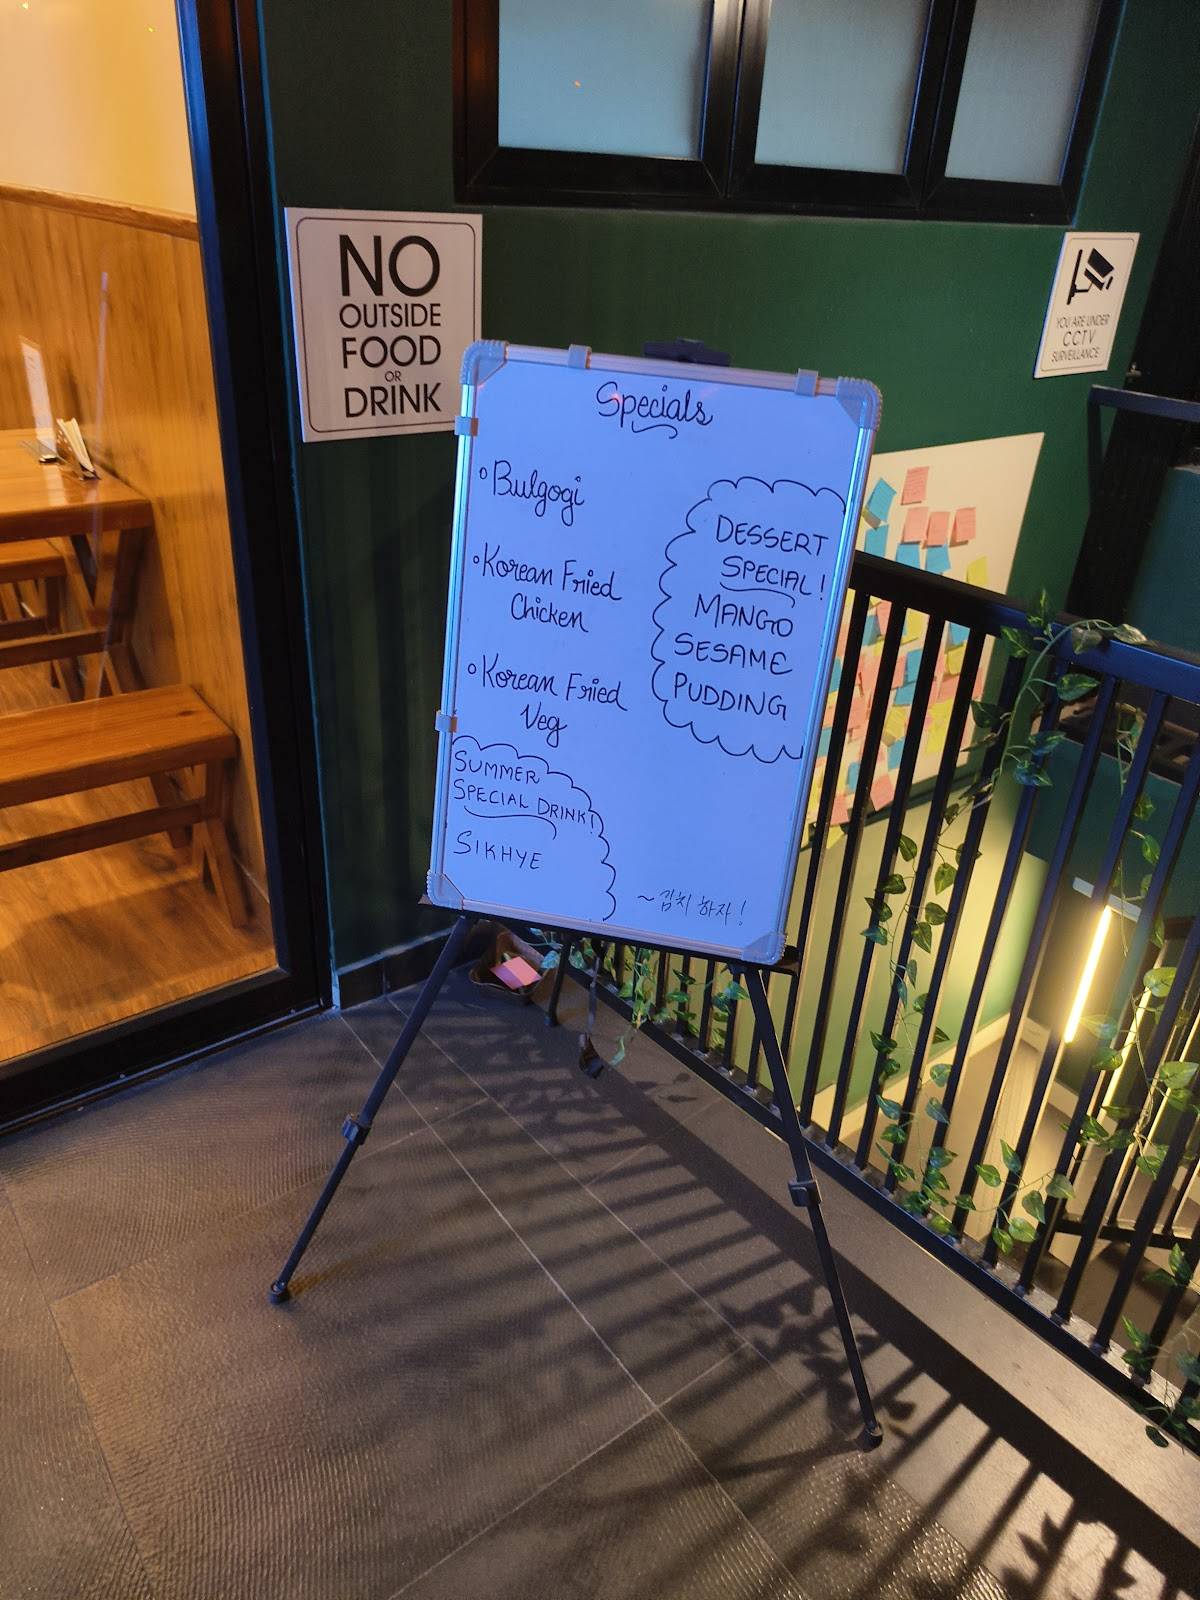 NO
OUTSIDE
FOOD
OR
DRINK
YOU ARE UNDER
CCTV
SURVEILLANCE
Specials
Bulgogi
Korean Fried
Chicken
Korean Fried
Veg
DESSERT
SPECIAL!
MANGO
SESAME
PUDDING
SUMMER
SPECIAL DRINK!
SIKHYE
~김치 하자!